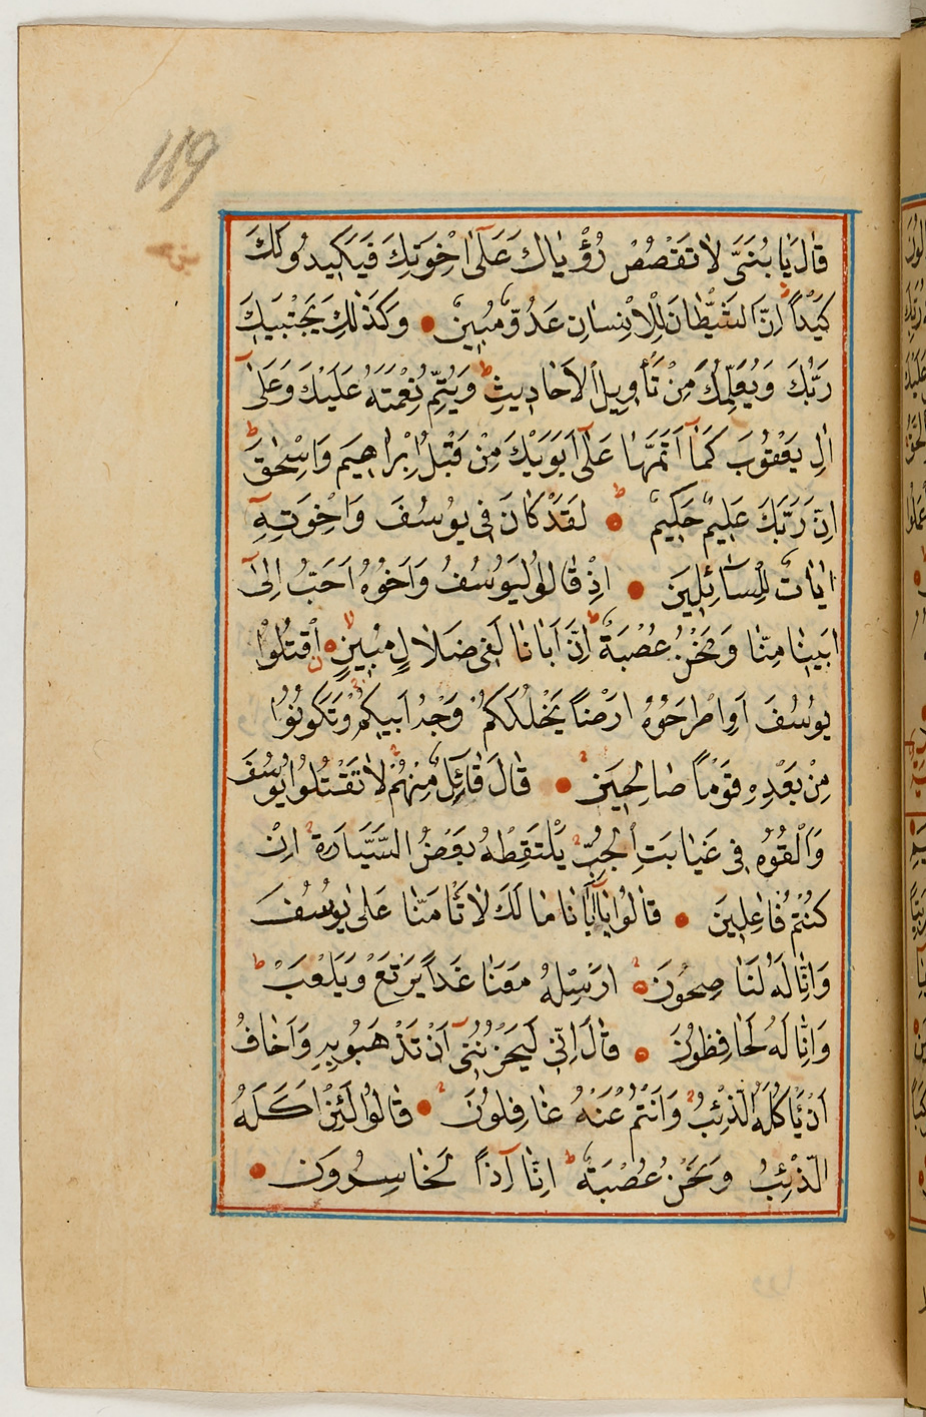 119
قَالَ يَا بُنَىَّ لَا تَقْصُصْ رُؤْيَاكَ عَلٰٓى اِخْوَتِكَ فَيَكِيدُوا لَكَ
كَيْدًا اِنَّ الشَّيْطَانَ لِلْاِنْسَانِ عَدُوٌّ مُبِينٌ وَكَذٰلِكَ يَجْتَبِيكَ
رَبُّكَ وَيُعَلِّمُكَ مِنْ تَأْوِيلِ الْاَحَادِيثِ وَيُتِمُّ نِعْمَتَهُ عَلَيْكَ وَعَلٰٓى
اٰلِ يَعْقُوبَ كَمَٓا اَتَمَّهَا عَلٰٓى اَبَوَيْكَ مِنْ قَبْلُ اِبْرَاهِيمَ وَاِسْحٰقَ
اِنَّ رَبَّكَ عَلِيمٌ حَكِيمٌ لَقَدْ كَانَ فِى يُوسُفَ وَاِخْوَتِهِٓ
اٰيَاتٌ لِلسَّٓائِلِينَ اِذْ قَالُوا لَيُوسُفُ وَاَخُوهُ اَحَبُّ اِلٰٓى
اَبِينَا مِنَّا وَنَحْنُ عُصْبَةٌ اِنَّ اَبَانَا لَفِى ضَلَالٍ مُبِينٍ اُقْتُلُوا
يُوسُفَ اَوِ اطْرَحُوهُ اَرْضًا يَخْلُ لَكُمْ وَجْهُ اَبِيكُمْ وَتَكُونُوا
مِنْ بَعْدِهِ قَوْمًا صَالِحِينَ قَالَ قَٓائِلٌ مِنْهُمْ لَا تَقْتُلُوا يُوسُفَ
وَاَلْقُوهُ فِى غَيَابَتِ الْجُبِّ يَلْتَقِطْهُ بَعْضُ السَّيَّارَةِ اِنْ
كُنْتُمْ فَاعِلِينَ قَالُوا يَٓا اَبَانَا مَا لَكَ لَا تَأْمَنَّا عَلٰى يُوسُفَ
وَاِنَّا لَهُ لَنَاصِحُونَ اَرْسِلْهُ مَعَنَا غَدًا يَرْتَعْ وَيَلْعَبْ
وَاِنَّا لَهُ لَحَافِظُونَ قَالَ اِنِّى لَيَحْزُنُنِٓى اَنْ تَذْهَبُوا بِهِ وَاَخَافُ
اَنْ يَأْكُلَهُ الذِّئْبُ وَاَنْتُمْ عَنْهُ غَافِلُونَ قَالُوا لَئِنْ اَكَلَهُ
الذِّئْبُ وَنَحْنُ عُصْبَةٌ اِنَّٓا اِذًا لَخَاسِرُونَ